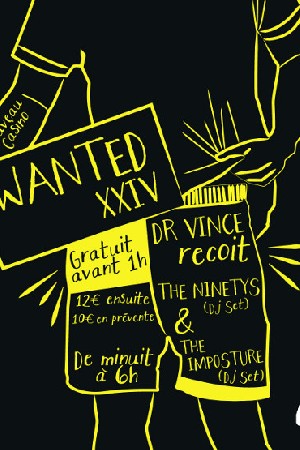 Nouveau
Casino
WANTED
XXIV
Gratuit
avant 1h
12€ ensuite
10€ en prévente
De minuit
à 6h
DR VINCE
reçoit
THE NINETYS
(Dj Set)
&
THE
IMPOSTURE
(Dj Set)